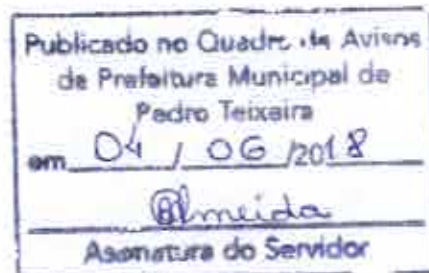 Publicado no Quadro de Avisos
da Prefeitura Municipal de
Pedro Teixeira
em 04 / 06 /2018
Almeida
Assinatura do Servidor